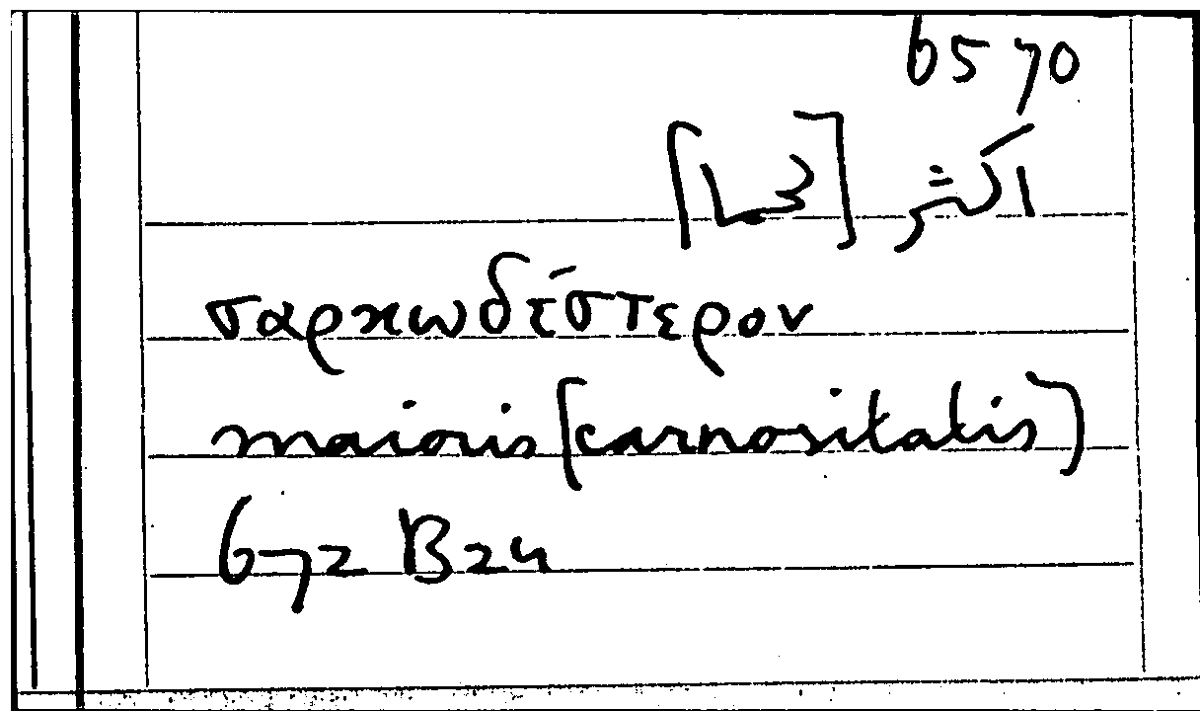 6570
[L3] اكثر
σαρκωδέστερον
maioris [carnositatis]
672 B24